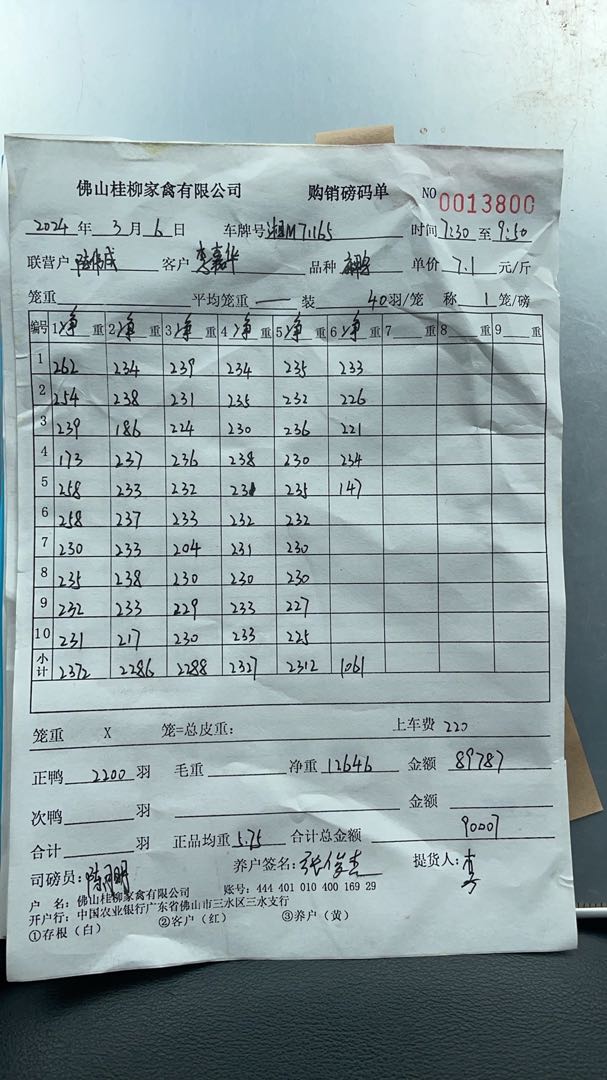 佛山桂柳家禽有限公司 购销磅码单 NO 0013800
2024 年 3 月 6 日 车牌号 湘M71165 时间 7:30 至 9:50
联营户 客户 李嘉华 品种 单价 7.1 元/斤
笼重 平均笼重 一 装 40 羽/笼 称 1 笼/磅
编号 1 净 重 2 净 重 3 净 重 4 净 重 5 净 重 6 净 重 7 重 8 重 9 重
1 262 234 239 234 235 233
2 254 238 231 235 232 226
3 239 186 224 230 236 221
4 173 237 236 238 230 234
5 258 233 232 230 235 147
6 258 237 233 232 232
7 230 233 204 231 230
8 235 238 230 230 230
9 232 233 229 233 227
10 231 217 230 233 225
小计 2372 2286 2288 2327 2312 1061
笼重 X 笼=总皮重: 上车费 220
正鸭 2200 羽 毛重 净重 12646 金额 89787
次鸭 羽 金额
合计 羽 正品均重 5.75 合计总金额 90007
司磅员: 养户签名: 张俊杰 提货人: 李
户 名: 佛山桂柳家禽有限公司 账号: 444 401 010 400 169 29
开户行: 中国农业银行广东省佛山市三水区三水支行
①存根(白) ②客户(红) ③养户(黄)